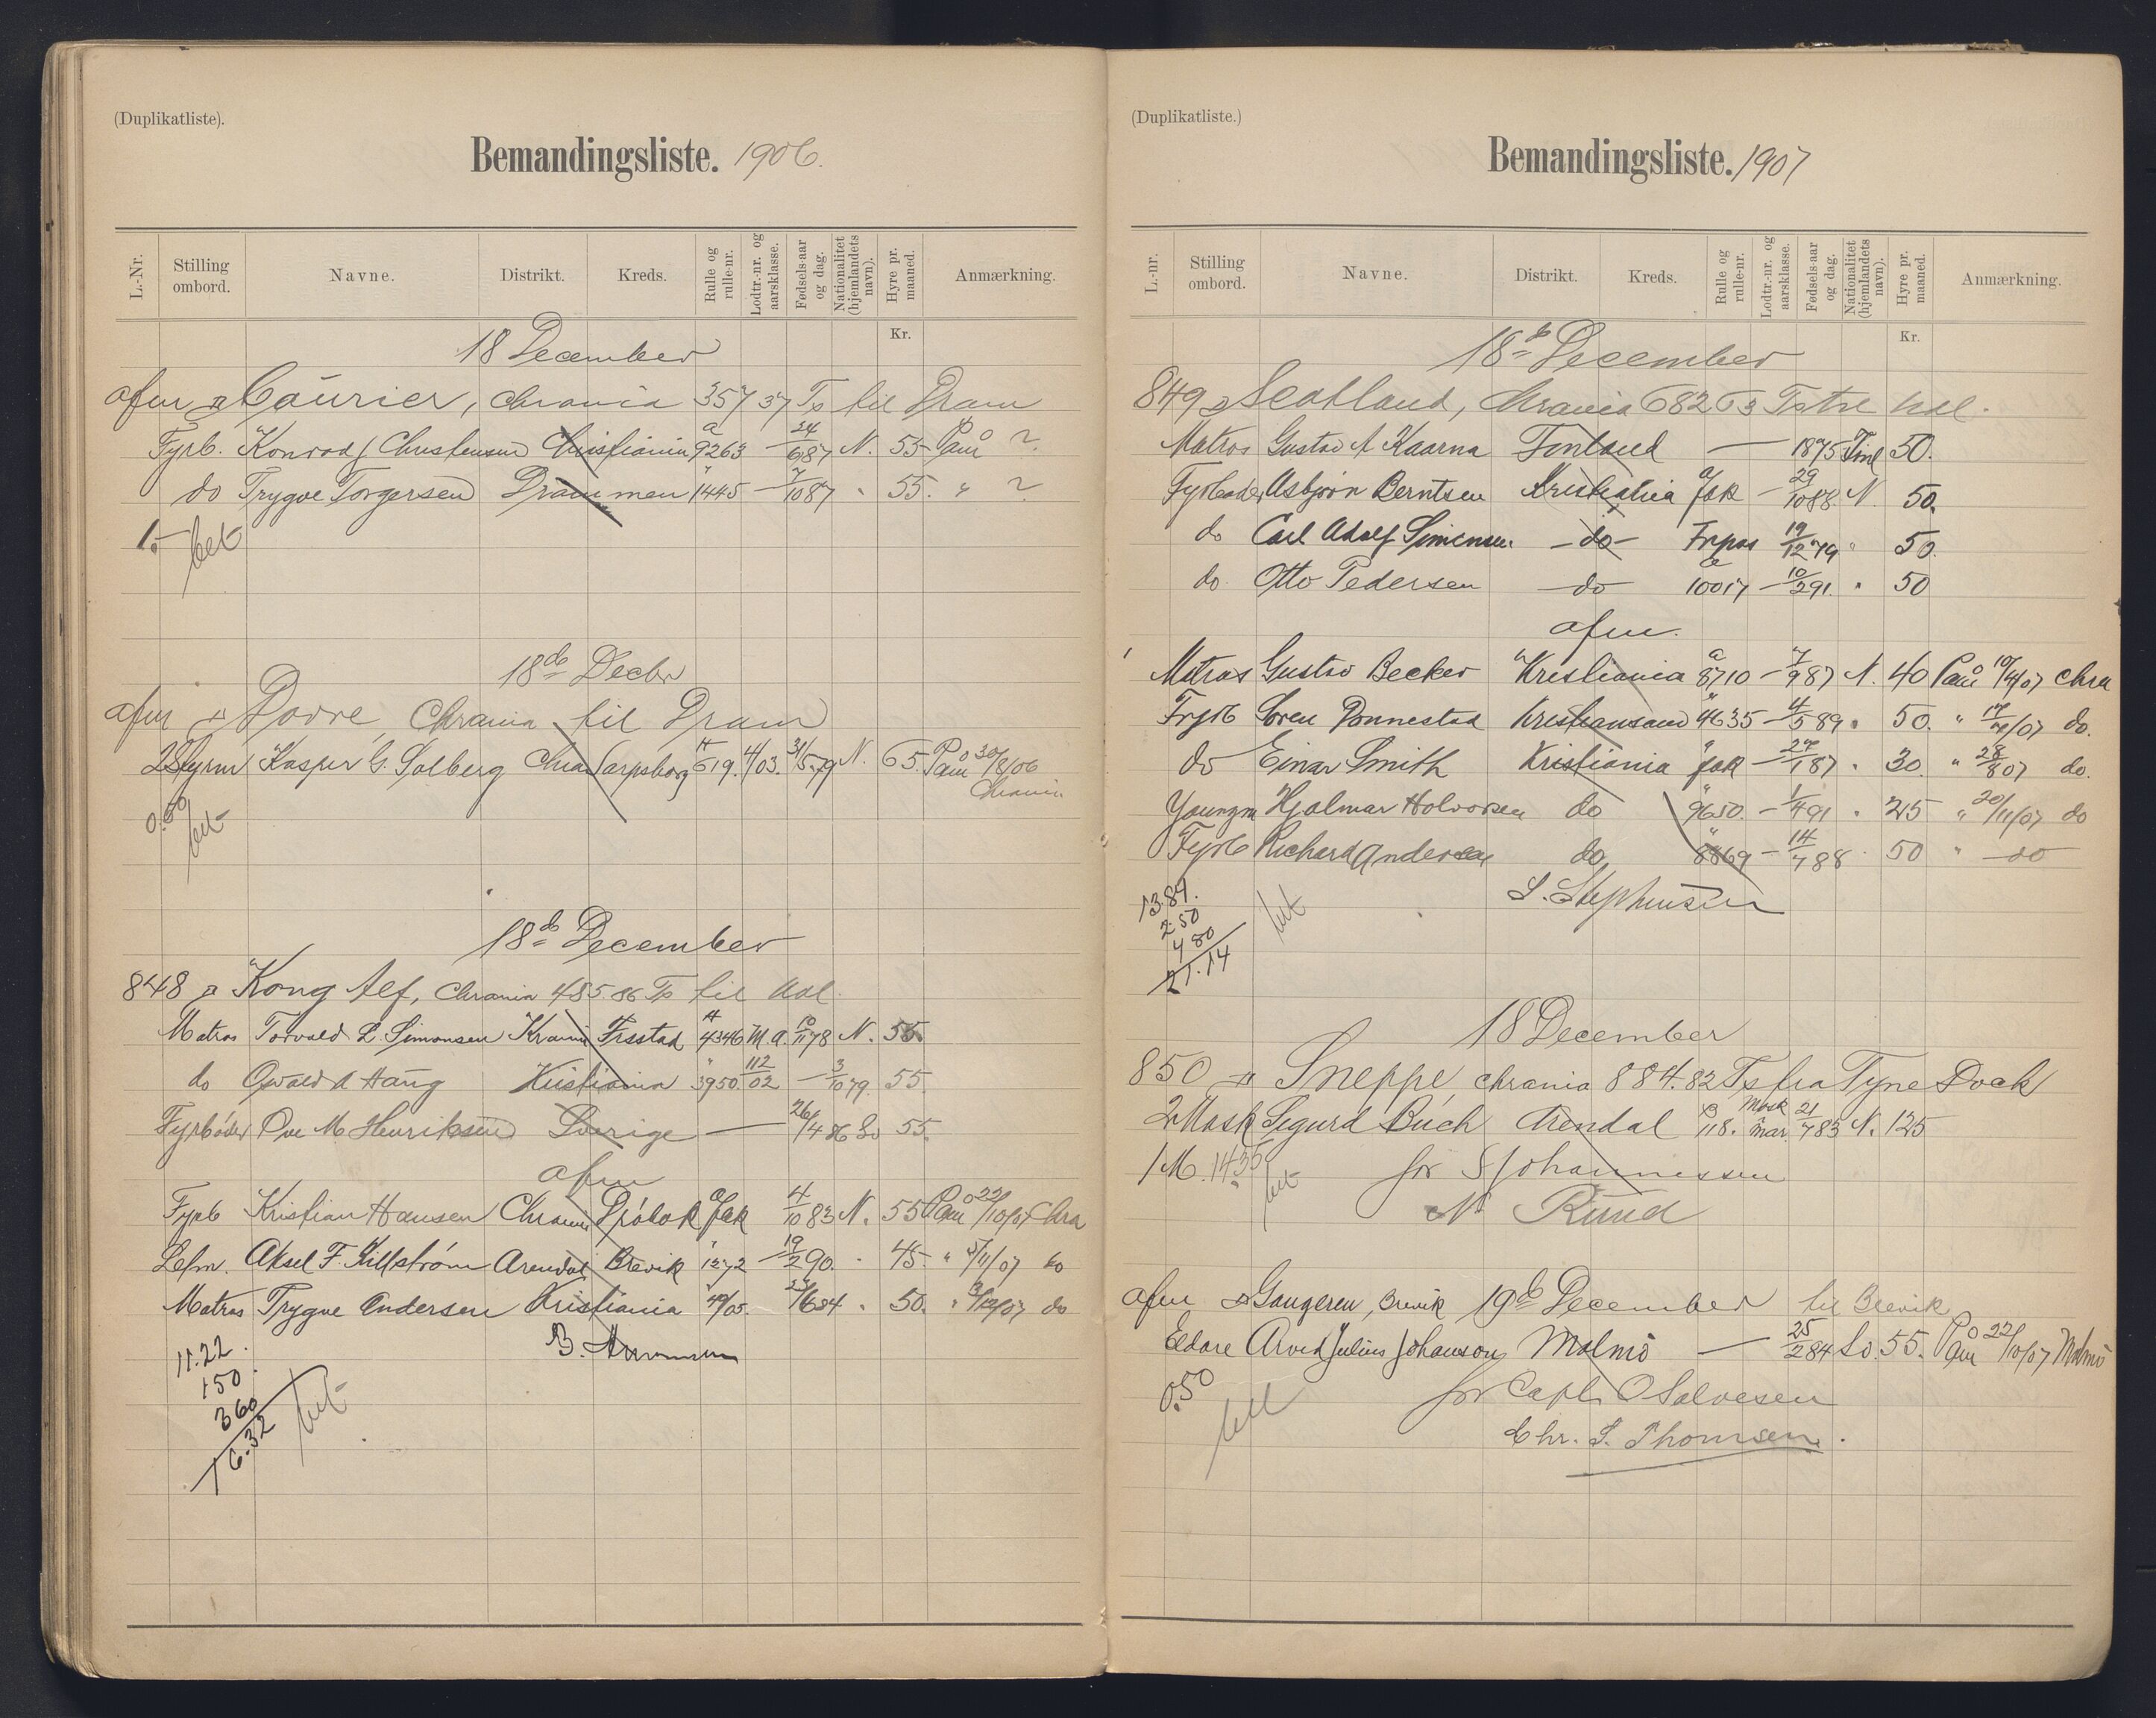 (Duplikatliste).
Bemandingsliste. 1906.
L.-Nr. Stilling ombord. Navne. Distrikt. Kreds. Rulle og rulle-nr. Lodtr.-nr. og aarsklasse. Fødsels-aar og dag. Nationalitet (hjemlandets navn). Hyre pr. maaned. Anmærkning.
Kr.
18 December
afm Courier, Chrania 357 37 Ts til Dram
Fyrb. Konrad J. Christensen Christiania a 9263 — 24/6 87 N. 55 Paam ?
do Trygve Torgersen Drammen " 1445 — 7/10 87 " 55. " ?
1.- bet
18de Decbr
afm Dovre, Chrania til Dram
2Styrm Kasper G. Solberg Chra Sarpsborg 619. 4/03. 31/5.79 N. 65. Paam 30/8/06
Chrania
0.60 bet
18de December
848 Kong Alf, Chrania 485.86 Ts til Udl.
Matros Torvald L. Simonsen Krania Frsstad 4346 M.a. 10/11 78 N. 55.
do Osvald A Haug Kristiania " 3950. 112/02 — 3/10 79. 55.
Fyrbøder Ove M Henriksen Sverige — 26/4 86 Sv 55.
afm
Fyrb Kristian Hansen Chrania Drøbak a fsk 4/10 83 N. 55 Paam 22/10/07 Chra
Letm. Aksel F. Killstrøm Arendal Brevik " 1272 — 19/2 90. " 45. " 5/11/07 do
Matros Trygve Andersen Kristiania 49/05. 27/6 84 " 50. " 3/12/07 do
11.22.
150.
360
16.32 bet
(Duplikatliste.)
Bemandingsliste. 1907
L.-nr. Stilling ombord. Navne. Distrikt. Kreds. Rulle og rulle-nr. Lodtr.-nr. og aarsklasse. Fødsels-aar og dag. Nationalitet (hjemlandets navn). Hyre pr. maaned. Anmærkning.
Kr.
18de December
849 Scotland, Chrania 682 63 Ts Udl.
Matros Gustav A Kaarna Finland — 1875 Finl 50.
Fyrbøder Asbjørn Berntsen Kristiania a fsk — 29/10 88. N. 50.
do Carl Adolf Simensen — do — Frpas 19/12 79 " 50.
do Otto Pedersen — do a 10017 — 10/2 91. " 50
afm.
Matros Gustav Becker Kristiania a 8710 — 7/9 87 N. 40 Paam 19/4/07 Chra
Fyrb Soren Donnestad Kristiansand " 4635 — 4/5 89 " 50. " do.
do Einar Smith Kristiania a fsk — 27/1 87 " 30. " 28/8 07 do.
Youngm Hjalmar Holvorsen do " 9650. — 1/4 91 " 25 " 20/11/07 do
Fyrb Richard Andersen do " 8869 — 14/7 88 " 50 " — do —
S. Stephensen
13.84.
2.50
4 80
21.14 bet
18 December
850 Sneppe, Chrania 884.82 Ts fra Tyne Dock
2 Mask Sigurd Buch Arendal B 118. Mask mar 21/7 83 N. 125
1 M. 14.55 bet for S Johannessen
N Rund
afm Gangeren, Brevik 19de December til Brevik
Eldare Arvid Julius Johanson Malmö — 25/2 84 Sv. 55. Paam 22/10/07 Malmö
0.50 bet for Capt. O Salvesen
Chr. S. Thomsen.